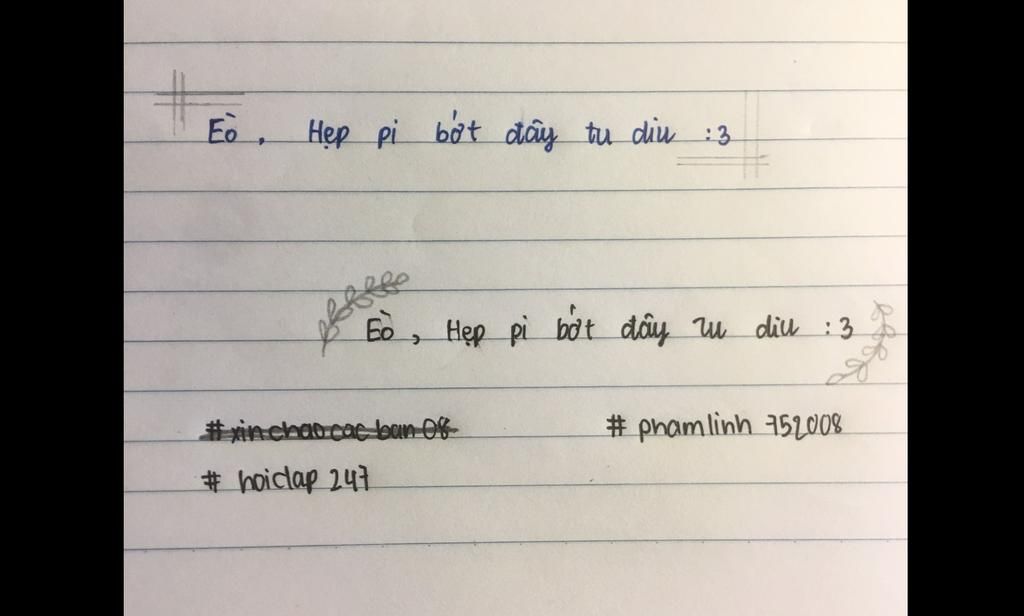 Eò, Hẹp pi bớt đây tu diu :3
Eò, Hẹp pi bớt đây tu diu :3
#xinchaocacban08 # phamlinh 752008
# hoidap 247